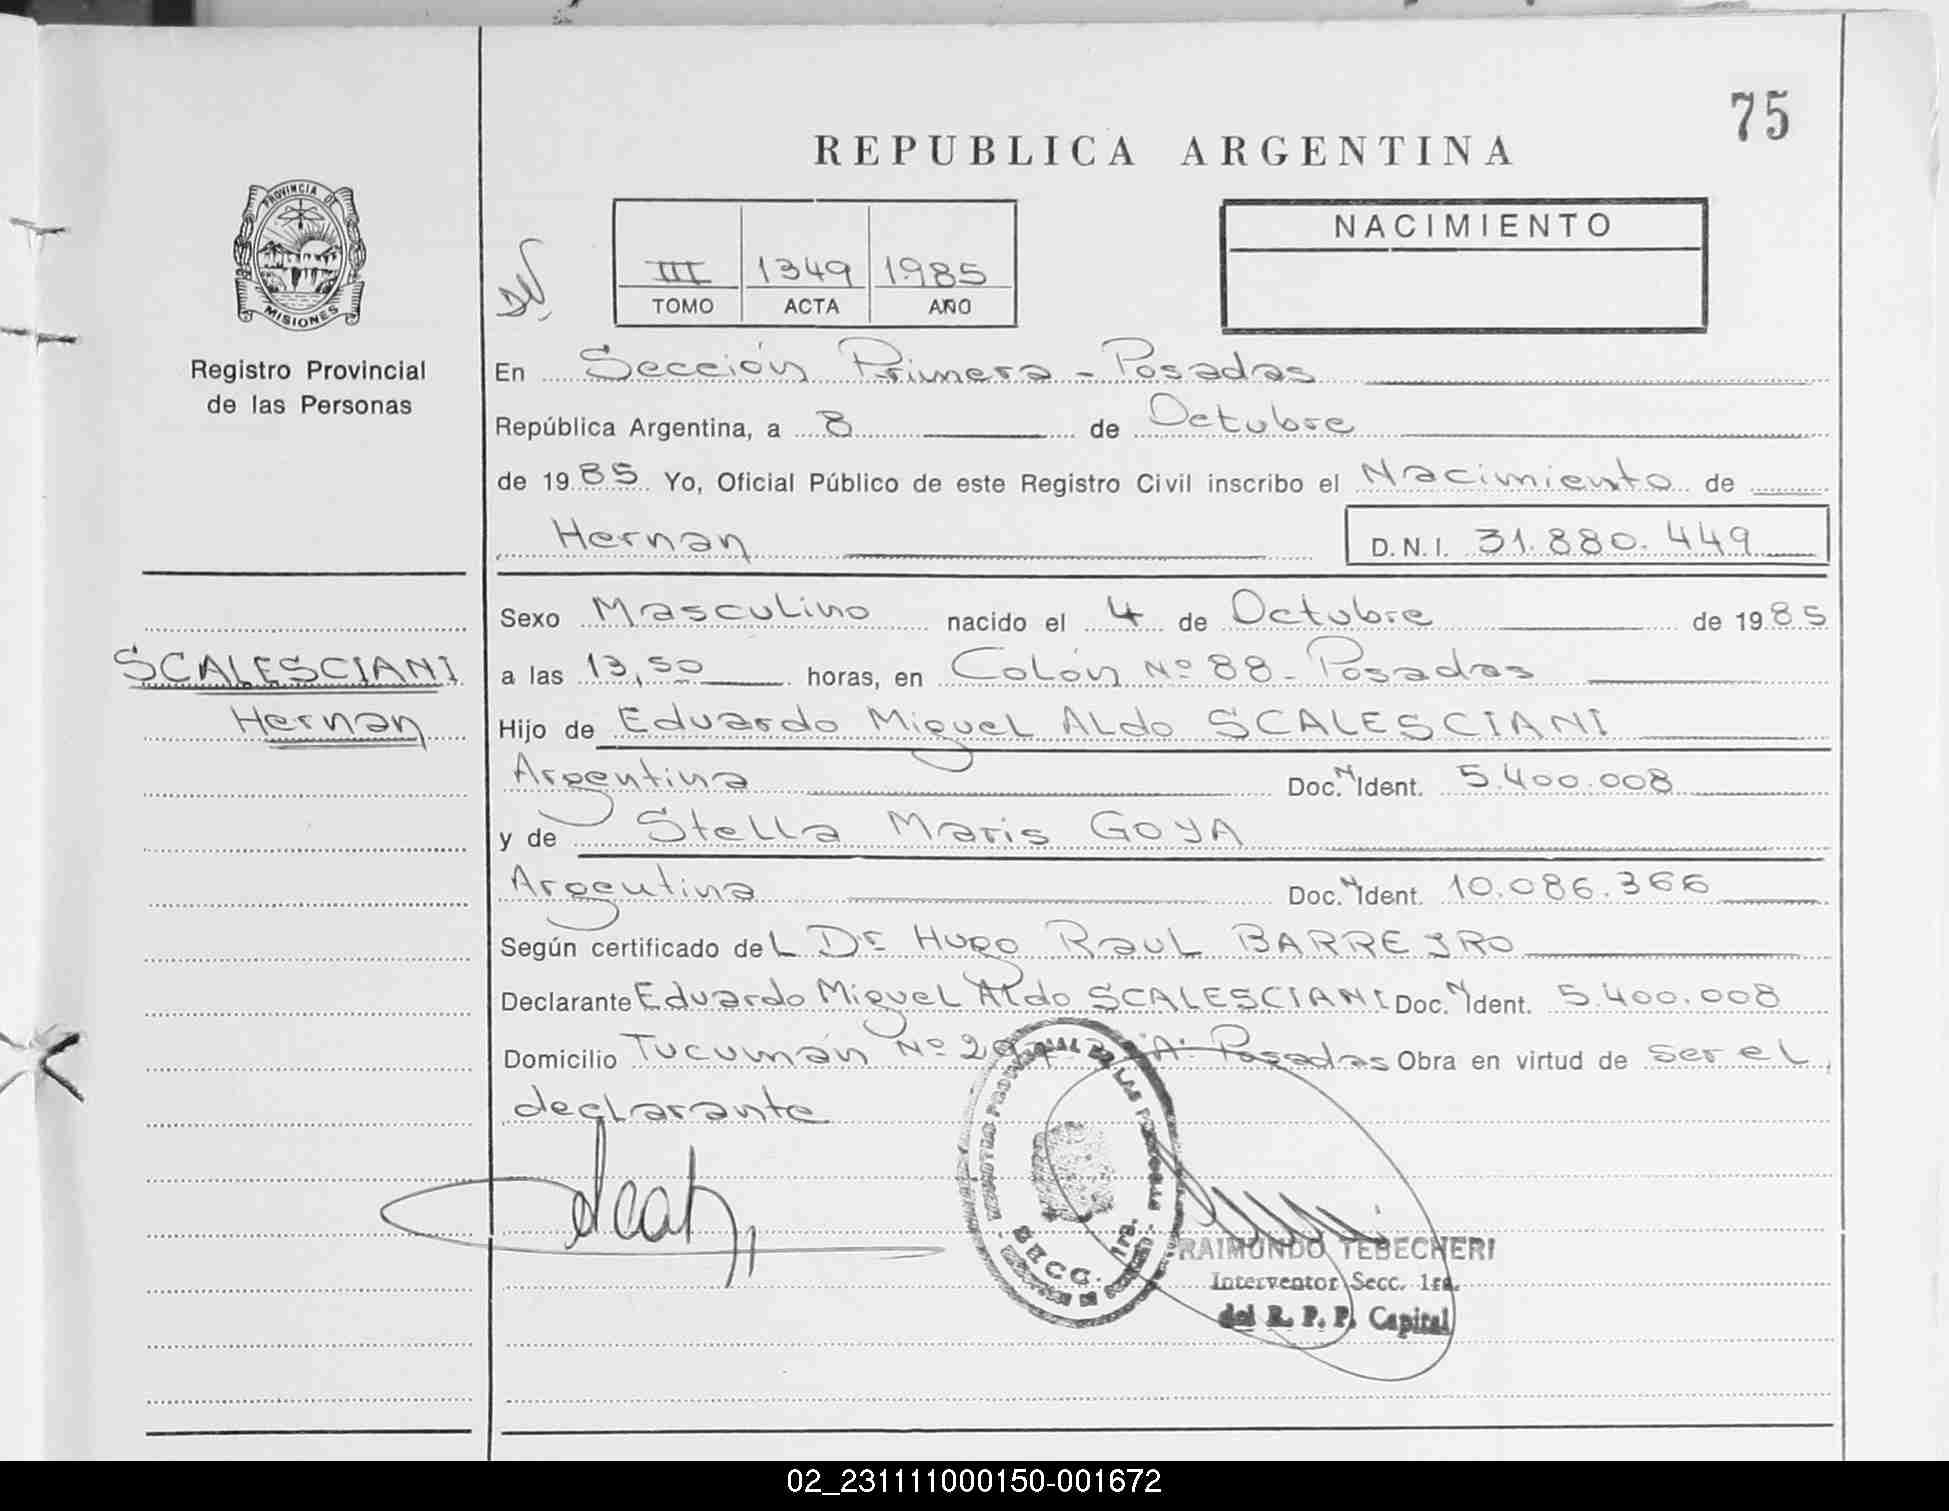 75
REPUBLICA ARGENTINA
PROVINCIA DE
MISIONES
Registro Provincial
de las Personas
III 1349 1985
TOMO ACTA AÑO
NACIMIENTO
En Sección Primera - Posadas
República Argentina, a 8 de Octubre
de 1985 Yo, Oficial Público de este Registro Civil inscribo el Nacimiento de
Hernan D.N.I. 31.880.449
Sexo Masculino nacido el 4 de Octubre de 1985
SCALESCIANI
a las 13,50 horas, en Colón Nº 88 - Posadas
Hernan
Hijo de Eduardo Miguel Aldo SCALESCIANI
Argentina Doc. N Ident. 5.400.008
y de Stella Maris GOYA
Argentina Doc. N Ident. 10.086.366
Según certificado del Dr Hugo Raul BARREJRO
Declarante Eduardo Miguel Aldo SCALESCIANI Doc. N Ident. 5.400.008
Domicilio Tucumán Nº "A" Posadas Obra en virtud de ser el
declarante
REGISTRO PROVINCIAL DE LAS PERSONAS
SECC. 1ra.
RAIMUNDO TEBECHERI
Interventor Secc. 1ra.
del R. P. P. Capital
02_231111000150-001672